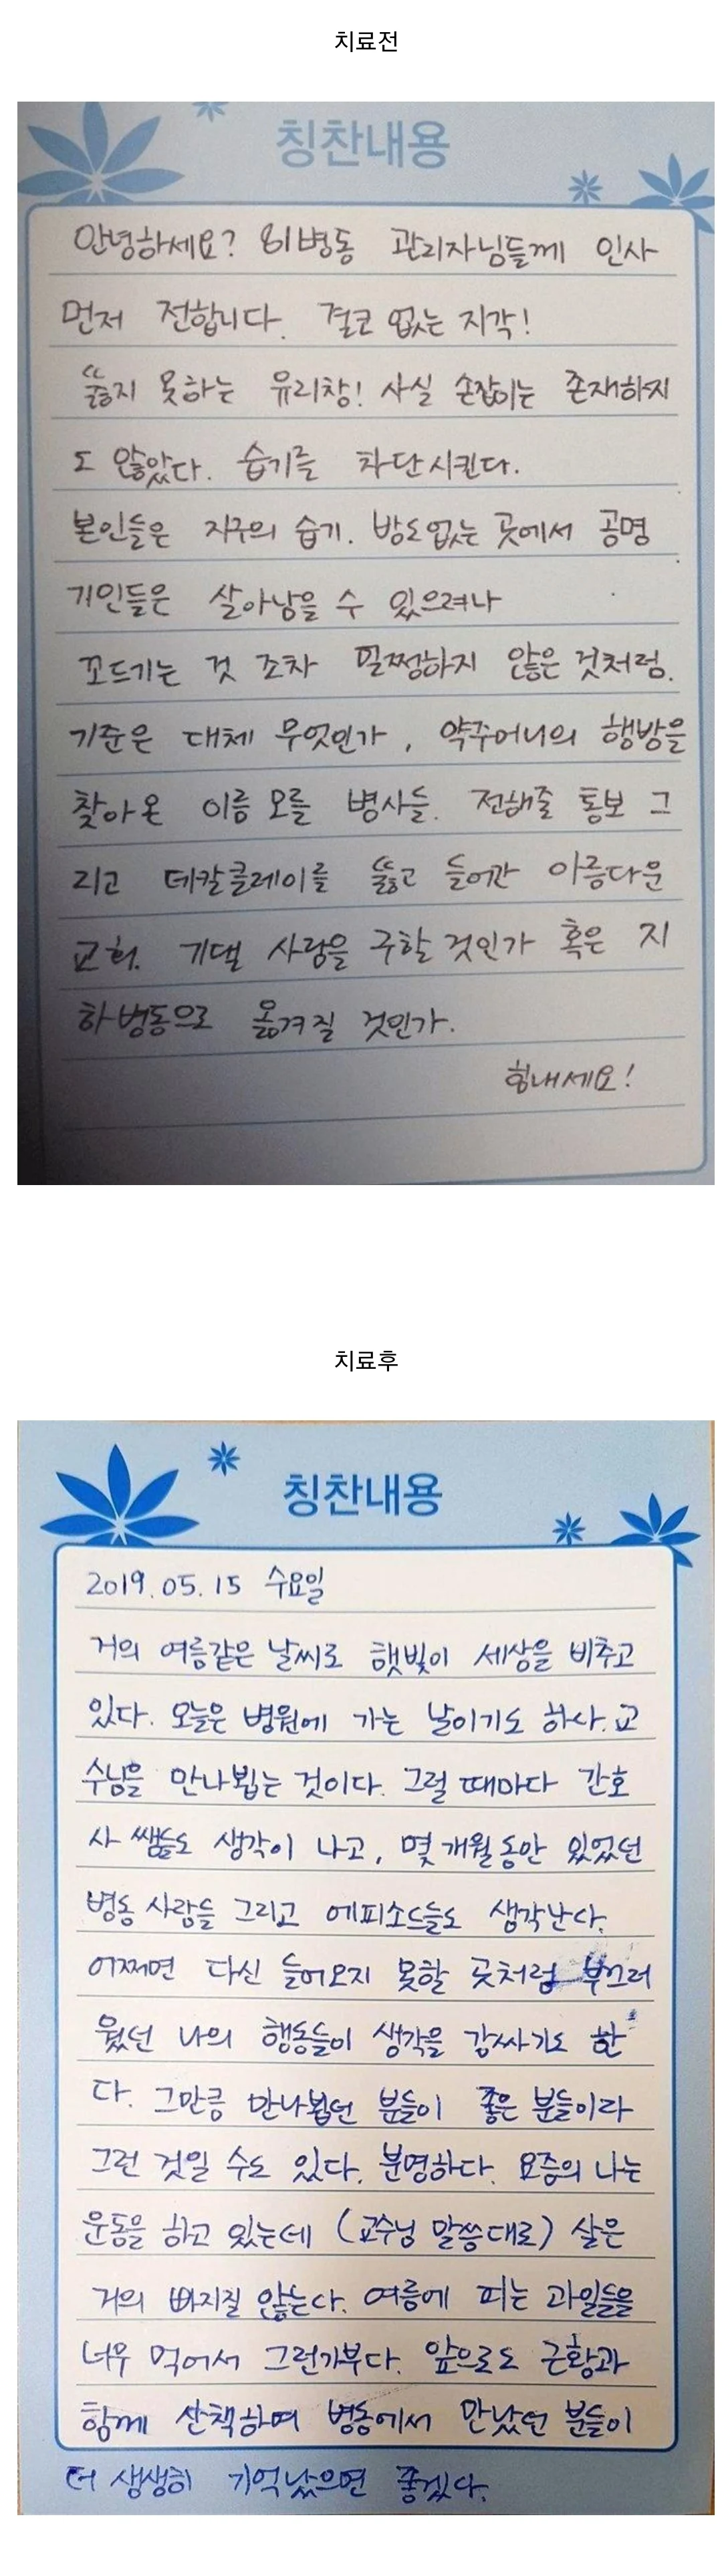 치료전
칭찬내용
안녕하세요? 81병동 관리자님들께 인사
먼저 전합니다. 결코 없는 지각!
뚫지 못하는 유리창! 사실 손잡이는 존재하지
도 않았다. 습기를 차단시킨다.
본인들은 지구의 습기. 방도없는 곳에서 공명
거인들은 살아남을 수 있으려나
꼬드기는 것 조차 멀쩡하지 않은 것처럼.
기준은 대체 무엇인가, 약주머니의 행방을
찾아온 이름 모를 병사들. 전해줄 통보 그
리고 데칼클레이를 뚫고 들어간 아름다운
교회. 기댈 사람을 구할 것인가 혹은 지
하병동으로 옮겨질 것인가.
힘내세요!
치료후
칭찬내용
2019.05.15 수요일
거의 여름같은 날씨로 햇빛이 세상을 비추고
있다. 오늘은 병원에 가는 날이기도 하다. 교
수님을 만나뵙는 것이다. 그럴 때마다 간호
사 쌤들도 생각이 나고, 몇 개월동안 있었던
병동 사람들 그리고 에피소드들도 생각난다.
어쩌면 다신 들어오지 못할 곳처럼 부끄러
웠던 나의 행동들이 생각을 감싸기도 한
다. 그만큼 만나뵙던 분들이 좋은 분들이라
그런 것일 수도 있다. 분명하다. 요즘의 나는
운동을 하고 있는데 (교수님 말씀대로) 살은
거의 빠지질 않는다. 여름에 피는 과일들을
너무 먹어서 그런가부다. 앞으로도 근황과
함께 산책하며 병동에서 만났던 분들이
더 생생히 기억났으면 좋겠다.